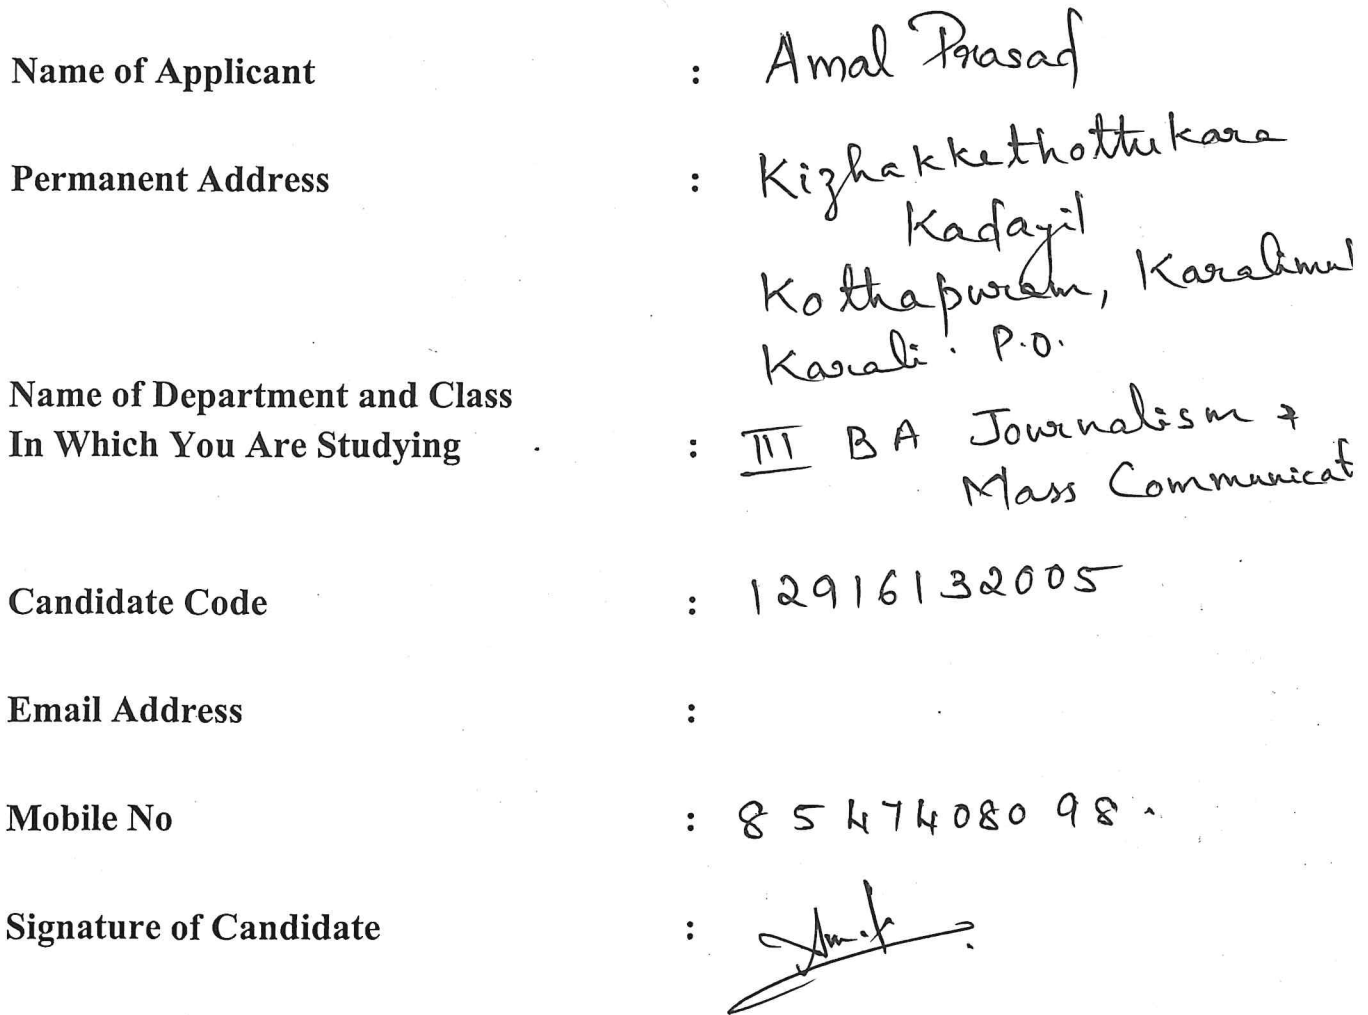 Name of Applicant : Amal Prasad
Permanent Address : Kizhakkethottukara
Kadayil
Kothapuram, Karalimu
Karali. P.O.
Name of Department and Class
In Which You Are Studying : III BA Journalism &
Mass Communicat
Candidate Code : 12916132005
Email Address :
Mobile No : 8547408098.
Signature of Candidate :